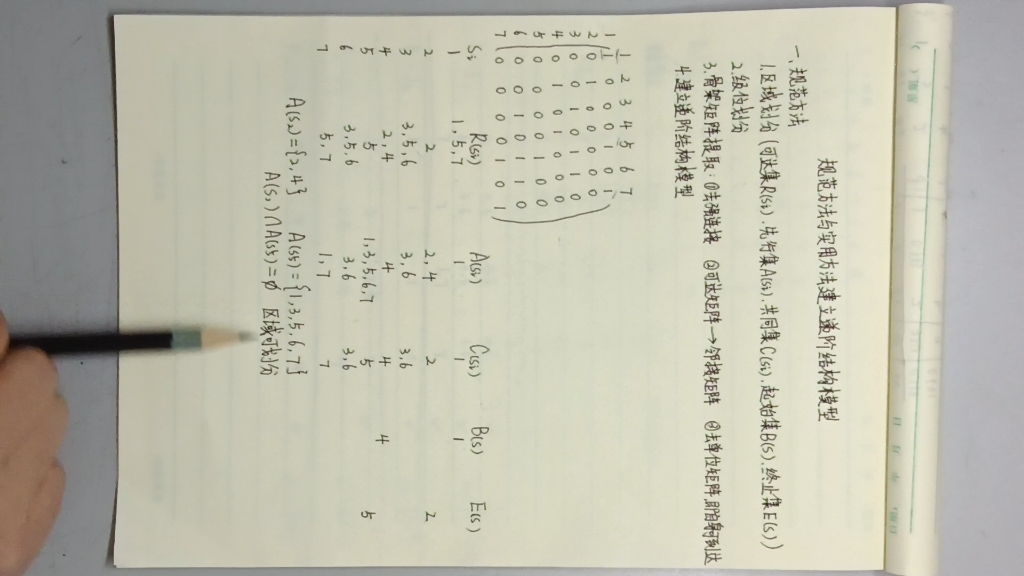 规范方法与实用方法建立递阶结构模型
一、规范方法
1.区域划分(可达集R(si).先行集A(si).共同集C(si).起始集B(s).终止集E(s))
2.级位划分
3.骨架矩阵提取:①去强连接 ②可达矩阵→邻接矩阵 ③去单位矩阵 到达
4.建立递阶结构模型
1 2 3 4 5 6 7
1 1 0 0 0 1 0 1
2 0 1 0 0 0 0 0
3 0 0 1 0 1 1 0
4 0 1 0 1 0 0 0
5 0 0 0 0 1 0 0
6 0 0 1 0 1 1 0
7 0 0 0 0 1 0 1
Si R(si) A(si) C(si) B(s) E(s)
1 1,5,7 1 1 1
2 2 2,4 2 2
3 3,5,6 3,6 3,6
4 2,4 4 4 4
5 5 1,3,5,6,7 5 5
6 3,5,6 3,6 3,6
7 5,7 1,7 7
A(s2)={2,4} A(s5)={1,3,5,6,7}
A(s2)∩A(s5)=∅ 区域可划分